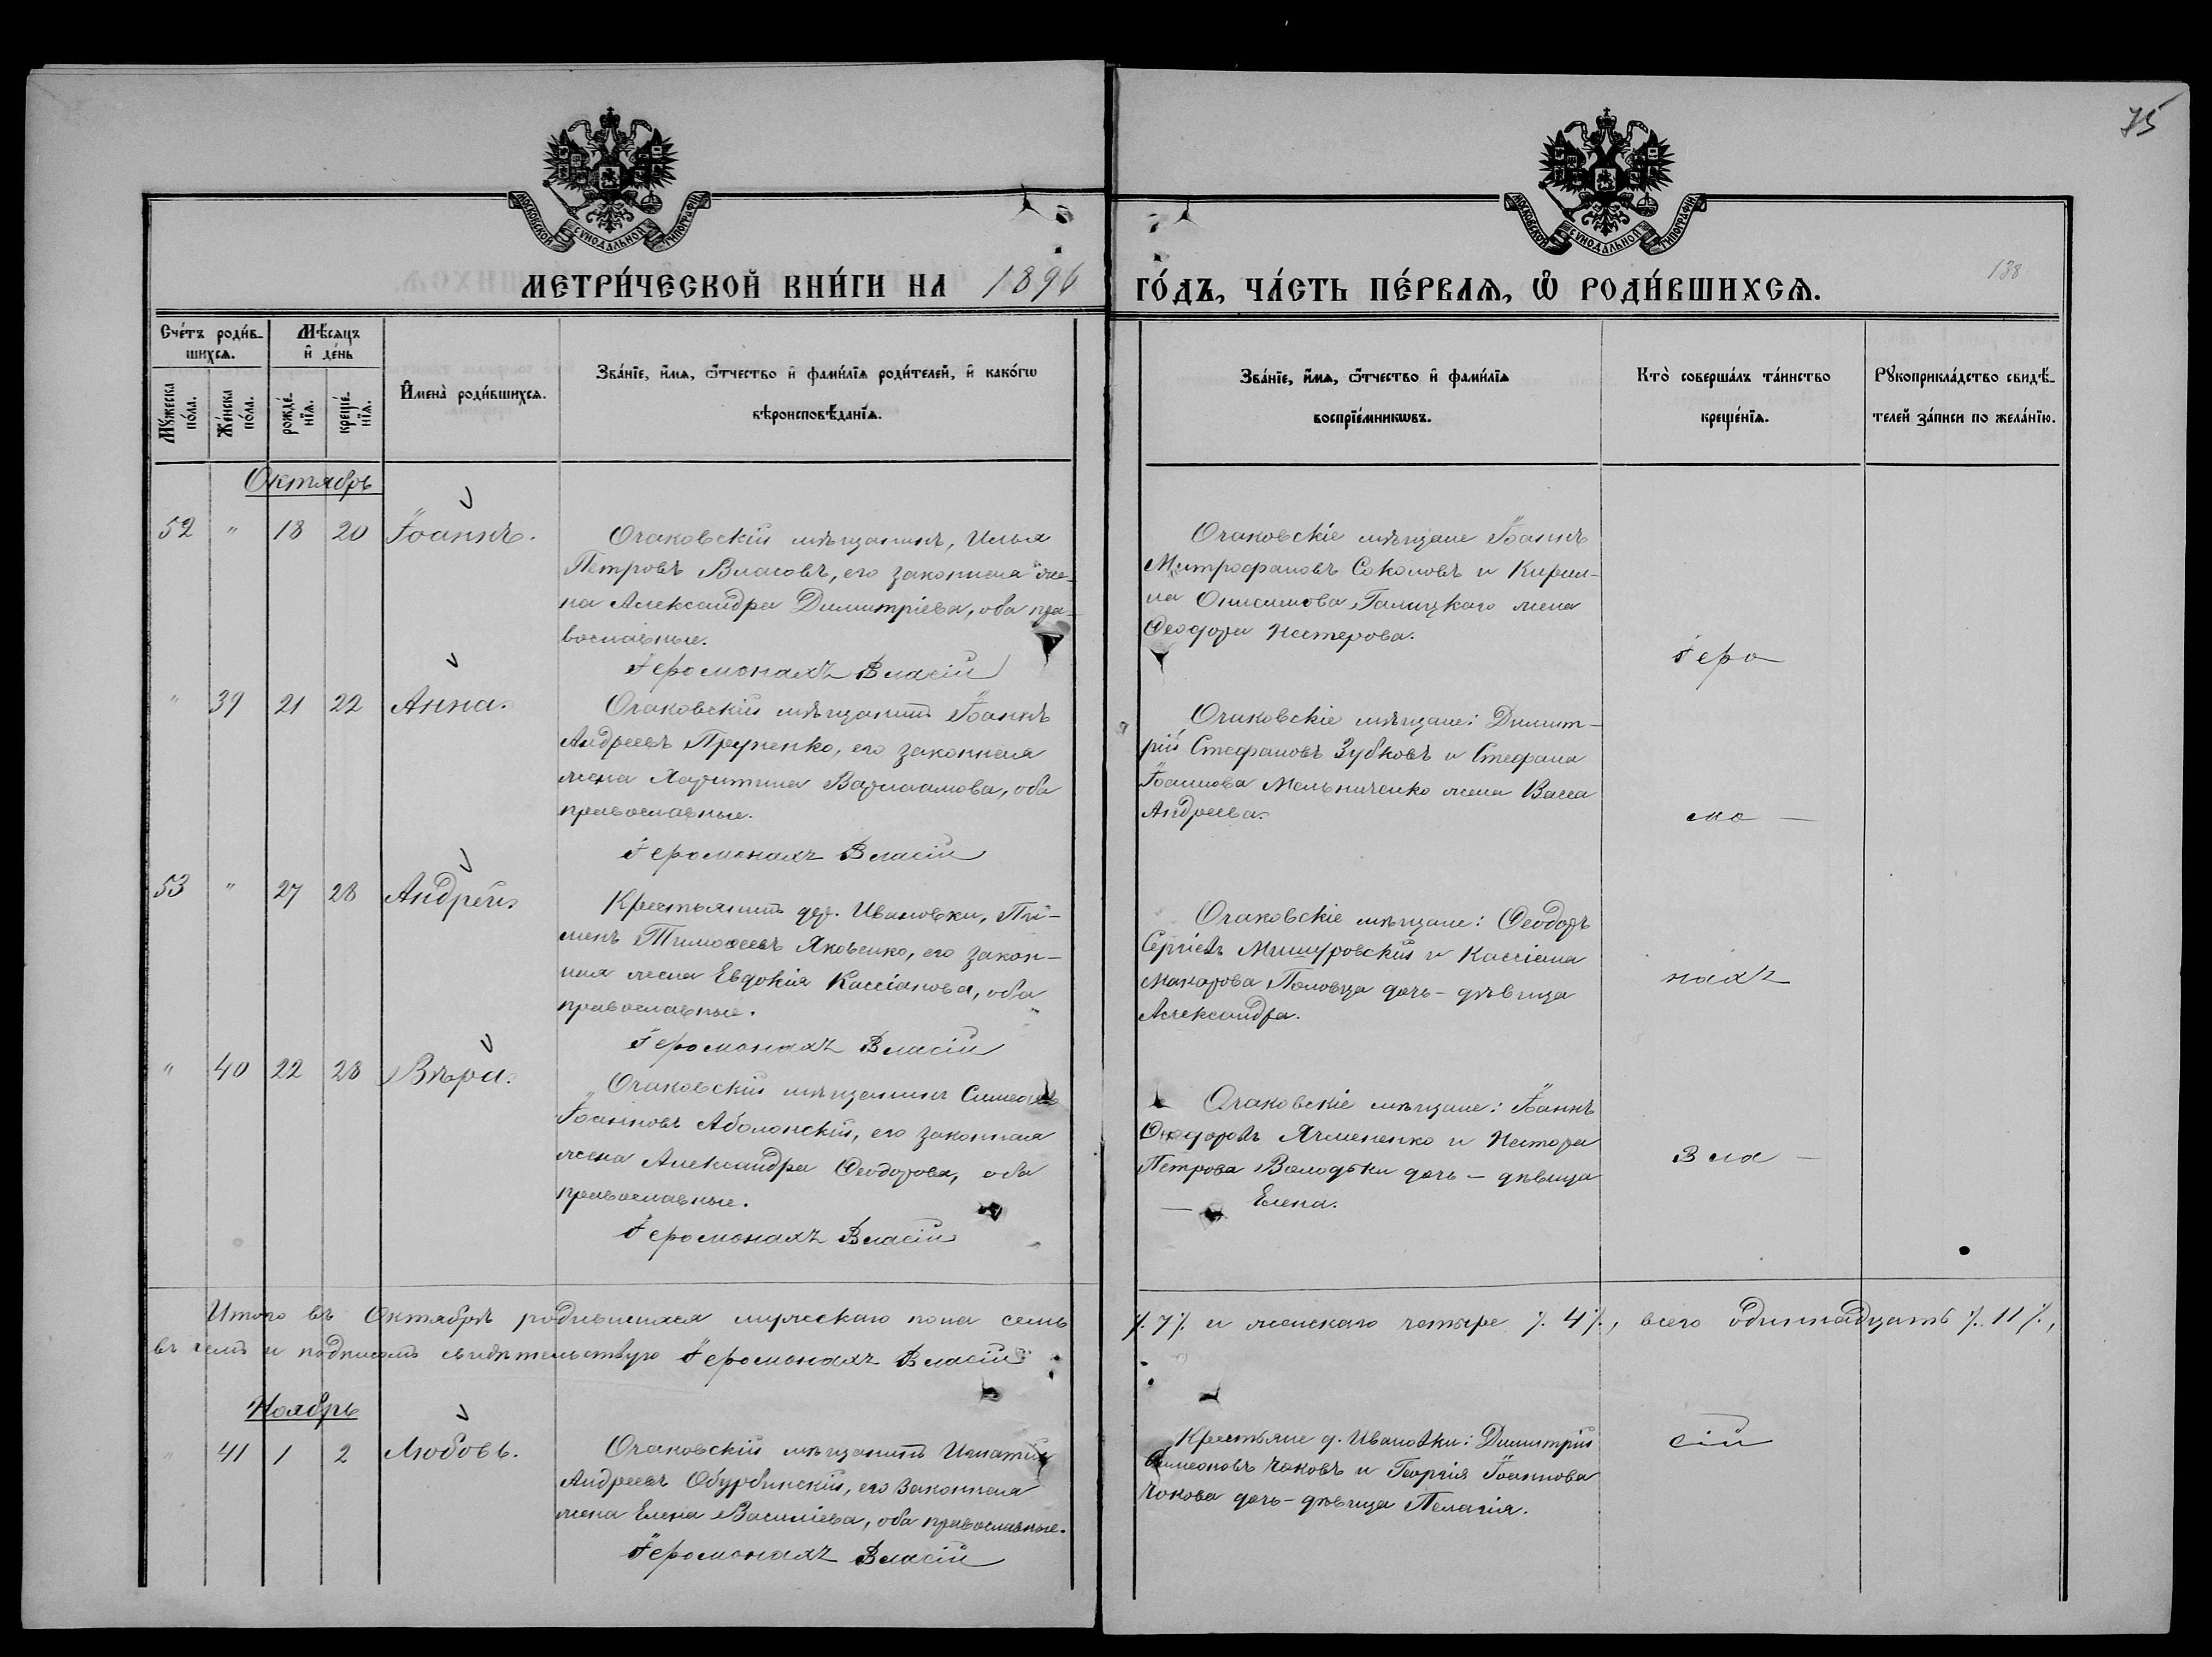 75
138
МОСКОВСКОЙ СѴНОДАЛЬНОЙ ТИПОГРАФІИ
МОСКОВСКОЙ СѴНОДАЛЬНОЙ ТИПОГРАФІИ
МЕТРИ́ЧЕСКОЙ КНИ́ГИ НА 1896 ГО́ДЪ, ЧА́СТЬ ПЕ́РВАѦ, Ѽ РОДИ́ВШИХСѦ.
Сче́тъ роди́в-
шихсѧ.
Мꙋжеска по́ла.
Же́нска по́ла.
Мѣ́сѧцъ
и҆ де́нь
рожде́-
нїѧ.
креще́-
нїѧ.
И҆мена̀ роди́вшихсѧ.
Зва́нїе, и҆́мѧ, ѻ҆́тчество и҆ фами́лїѧ роди́телей, и҆ како́гѡ
вѣроисповѣ́данїѧ.
Зва́нїе, и҆́мѧ, ѻ҆́тчество и҆ фами́лїѧ
воспрїе́мникѡвъ.
Кто̀ соверша́лъ та́инство
креще́нїѧ.
Рꙋкоприкла́дство свидѣ́-
телей за́писи по жела́нїю.
Октябрь
52 " 18 20 Іоаннъ.
Очаковскій мѣщанинъ, Илья
Петровъ Власовъ, его законная же-
на Александра Димитріева, оба пра-
вославные.
Іеромонахъ Власій
Очаковскіе мѣщане Іоаннъ
Митрофановъ Соколовъ и Кирил-
ла Онисимова Галицкаго жена
Ѳеодора Нестерова.
Іеро
" 39 21 22 Анна.
Очаковскій мѣщанинъ Іоаннъ
Андреевъ Пруненко, его законная
жена Харитина Варлаамова, оба
православные.
Іеромонахъ Власій
Очаковскіе мѣщане: Димит-
рій Стефановъ Зубковъ и Стефана
Іоаннова Мельниченко жена Васса
Андреева.
мо —
53 " 27 28 Андрей.
Крестьянинъ дер. Ивановки, Пи-
менъ Тимоѳеевъ Яковенко, его закон-
ная жена Евдокія Кассіанова, оба
православные.
Іеромонахъ Власій
Очаковскіе мѣщане: Ѳеодоръ
Сергіевъ Мишуровскій и Кассіана
Макарова Половца дочь - дѣвица
Александра.
нахъ
" 40 22 28 Вѣра.
Очаковскій мѣщанинъ Симеонъ
Іоанновъ Аболонскій, его законная
жена Александра Ѳеодорова, оба
православные.
Іеромонахъ Власій
Очаковскіе мѣщане: Іоаннъ
Ѳеодоровъ Ячмененко и Нестора
Петрова Володьки дочь — дѣвица
— Елена.
Вла —
Итого въ Октябрѣ родившихся мужескаго пола семь ٪ 7 ٪ и женскаго четыре ٪ 4 ٪, всего одиннадцать ٪ 11 ٪,
въ чемъ и подписомъ свидѣтельствую Іеромонахъ Власій
Ноябрь
" 41 1 2 Любовь.
Очаковскій мѣщанинъ Игнатій
Андреевъ Обурбинскій, его законная
жена Елена Василіева, оба православные.
Іеромонахъ Власій
Крестьяне д. Ивановки: Димитрій
Симеоновъ Чоковъ и Георгія Іоаннова
Чокова дочь - дѣвица Пелагія.
сій